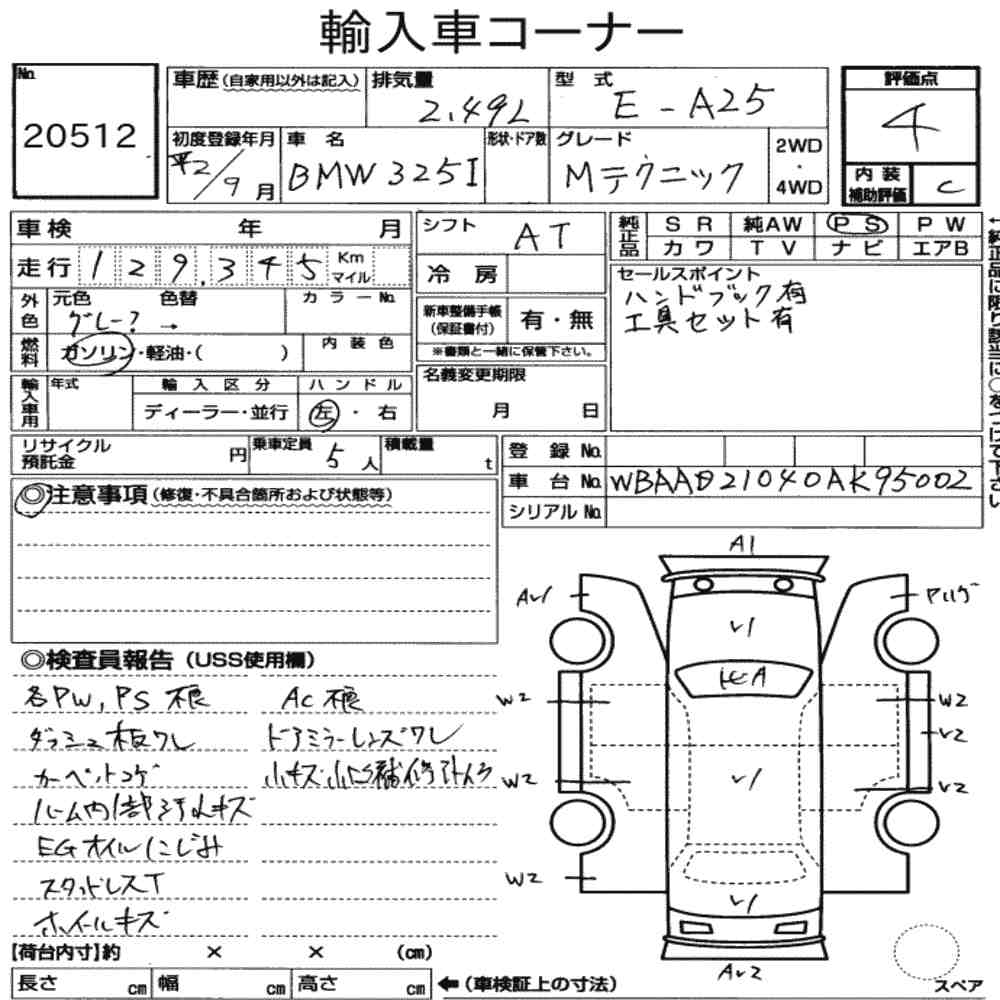 輸入車コーナー
No. 20512
車歴(自家用以外は記入)
排気量 2.49L
型式 E-A25
評価点 4
初度登録年月 平2/9月
車名 BMW 325I
形状・ドア数
グレード Mテクニック
2WD・4WD
内装補助評価 C
車検 年 月
シフト AT
純正品 SR 純AW PS PW
カワ TV ナビ エアB
走行 129,345 Km マイル
冷房
セールスポイント
ハンドブック有
工具セット有
外色 元色 色替 カラーNo.
グレー? →
新車整備手帳(保証書付) 有・無
※書類と一緒に保管下さい。
燃料 ガソリン・軽油・( )
内装色
名義変更期限
月 日
輸入車用 年式 輸入区分 ハンドル
ディーラー・並行 左・右
リサイクル預託金 円
乗車定員 5人
積載量 t
登録No.
車台No. WBAAB21040AK95002
シリアルNo.
←純正品に限り該当に○をつけて下さい
◎注意事項(修復・不具合箇所および状態等)
◎検査員報告(USS使用欄)
各PW,PS不良 AC不良
ダッシュ板ワレ ドアミラーレンズワレ
カーペットコゲ
ルーム内1部汚れキズ
EGオイルにじみ
スタッドレスT
ホイールキズ
A1
AV1
V1
W2 W2
V2
W2 V1 V2
W2
V1
AV2
スペア
【荷台内寸】約 × × (cm)
長さ cm 幅 cm 高さ cm ←(車検証上の寸法)